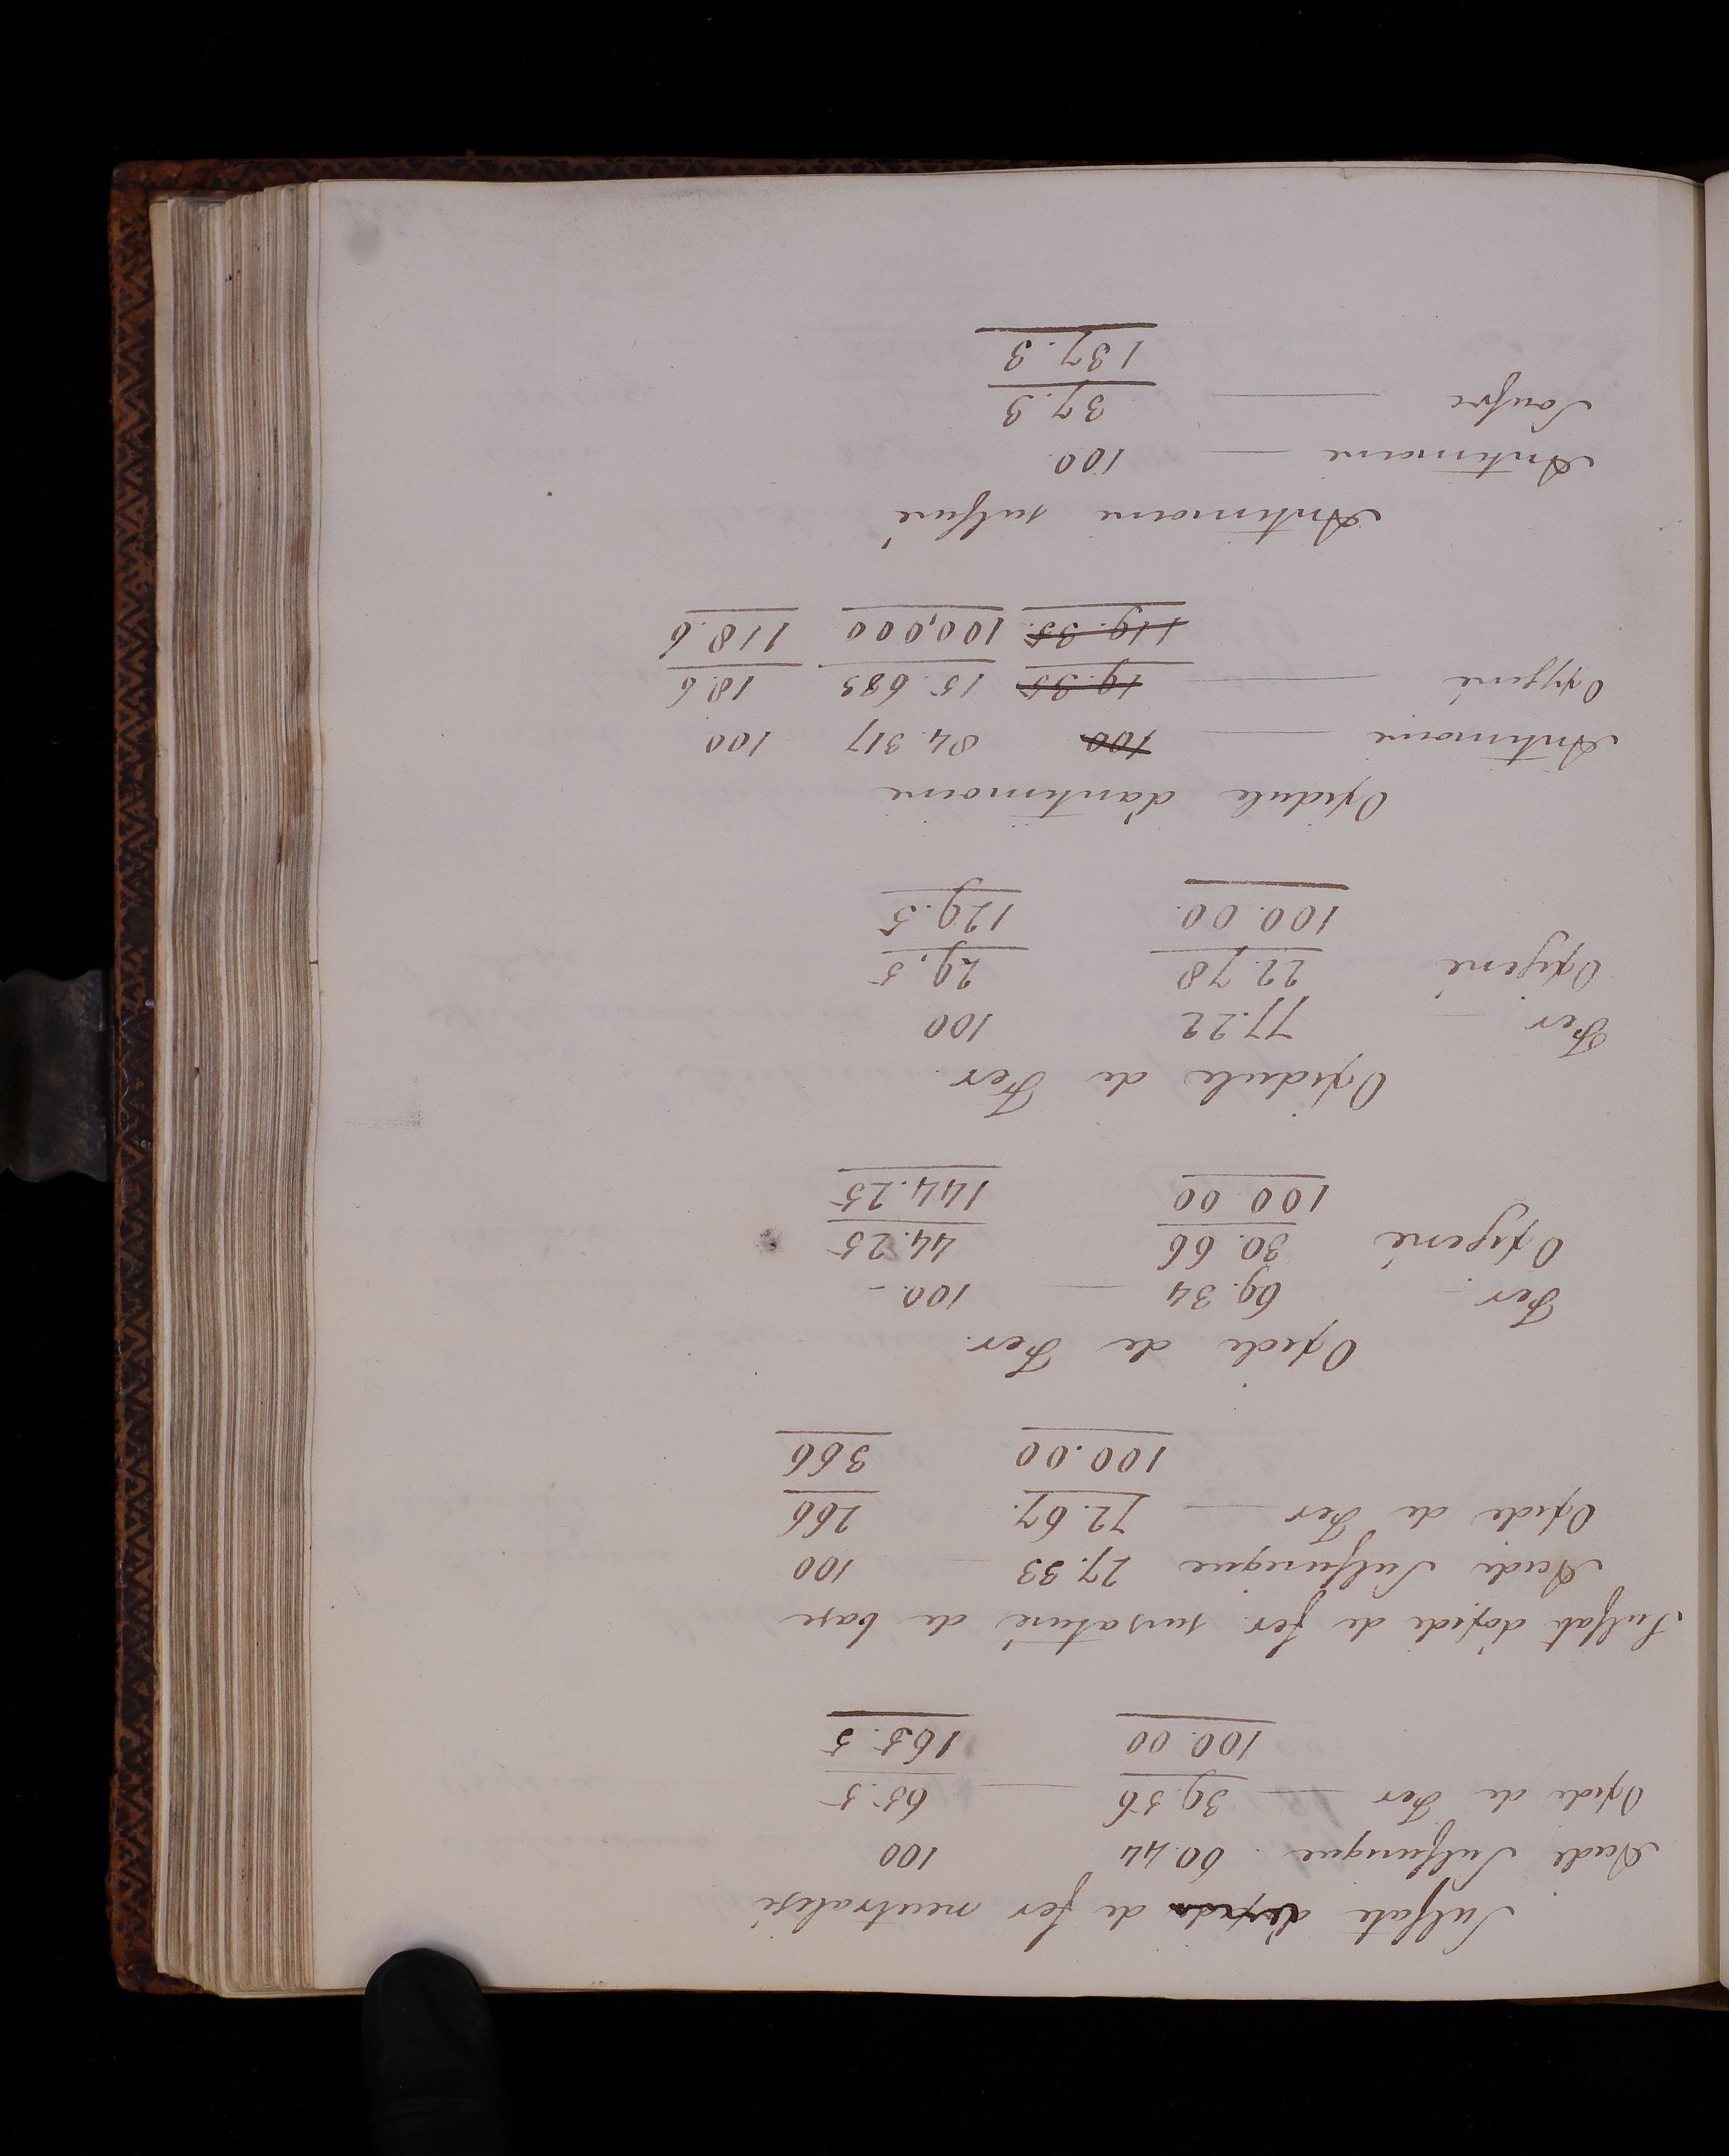 Sulfate d'oxide de fer neutralisé
Acide Sulfurique 60.44 100
Oxide de Fer — 39.56 — 65.5
100.00 165.5
Sulfate d'oxide de fer sursaturé de base
Acide Sulfurique 27.33 — 100
Oxide de Fer — 72.67. 266
100.00 366
Oxide de Fer.
Fer — 69.34 — 100.-
Oxigené 30.66 44.25
100.00 144.25
Oxidule de Fer.
Fer — 77.22 100
Oxigené 22.78 29.5
100.00. 129.5
Oxidule d'antimoine
Antimoine — 100 84.317 100
Oxygené — 19.35 15.683 18.6
119.35. 100,000 118.6
Antimoine sulfuré
Antimoine — 100
Soufre — 37.3
137.3